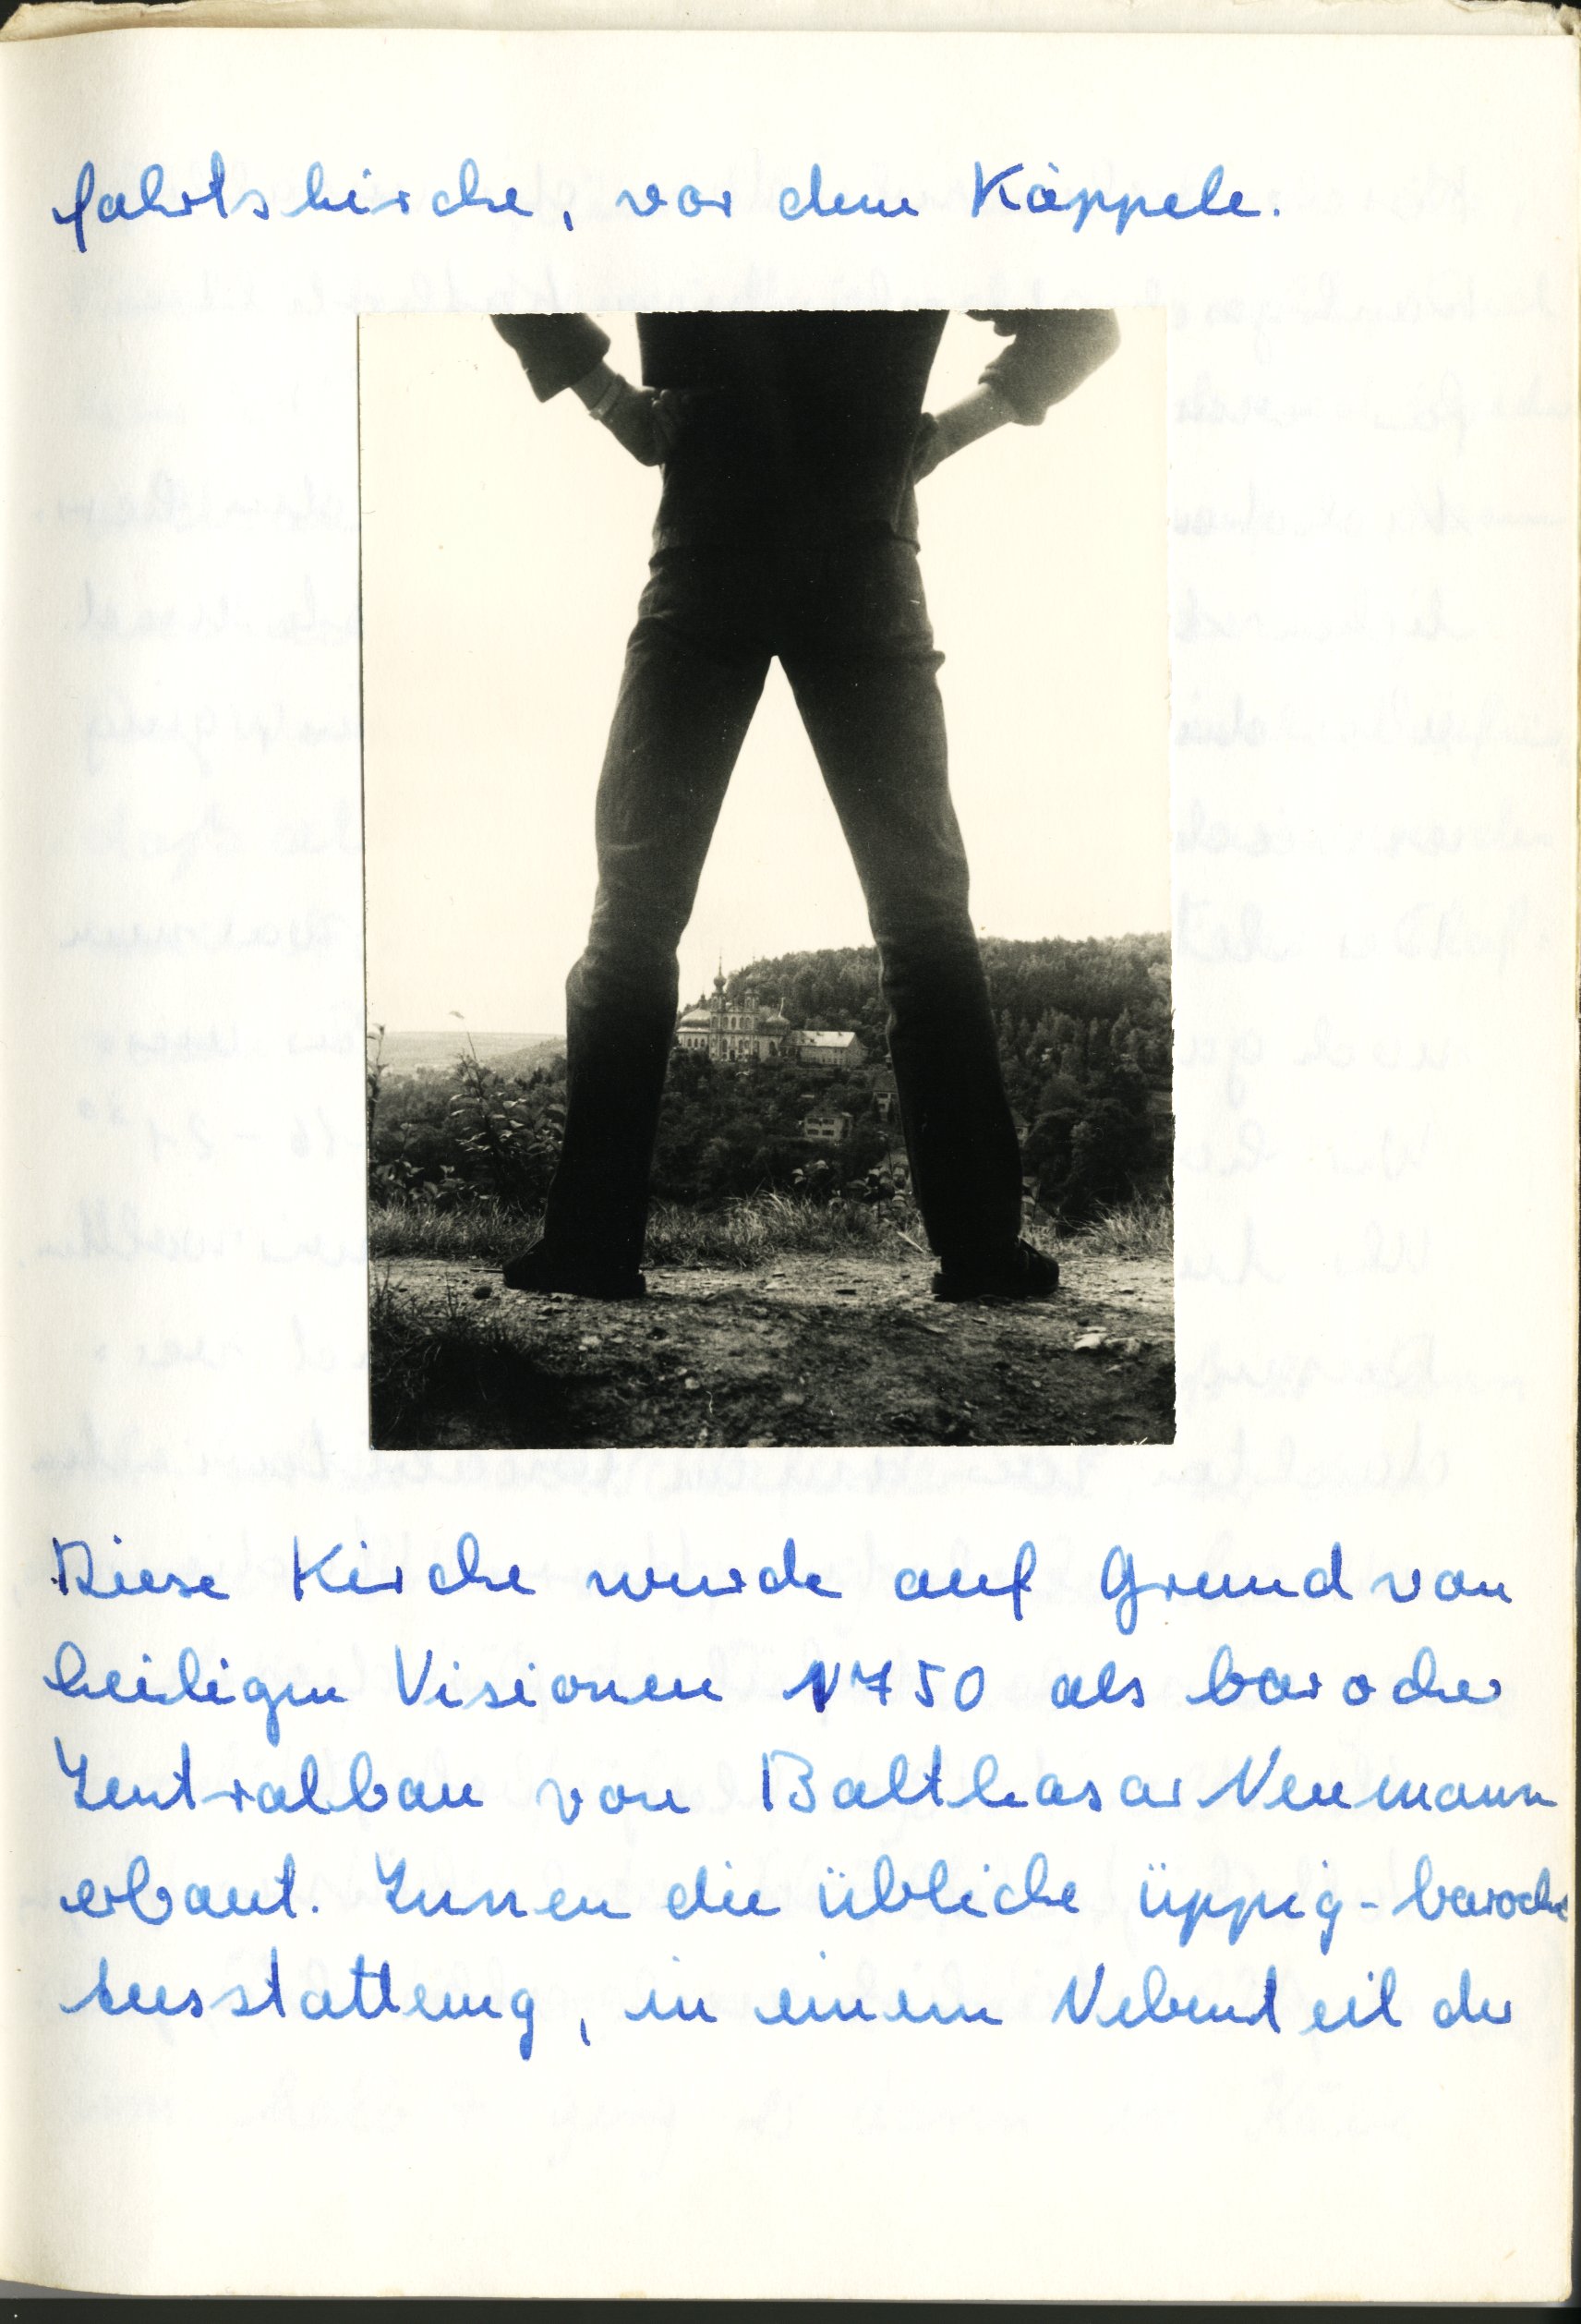 fahrtskirche, vor dem Käppele.
Diese Kirche wurde auf Grund von
heiligen Visionen 1750 als barocker
Zentralbau von Balthasar Neumann
erbaut. Innen die übliche üppig-barocke
Ausstattung, in einem Nebenteil der